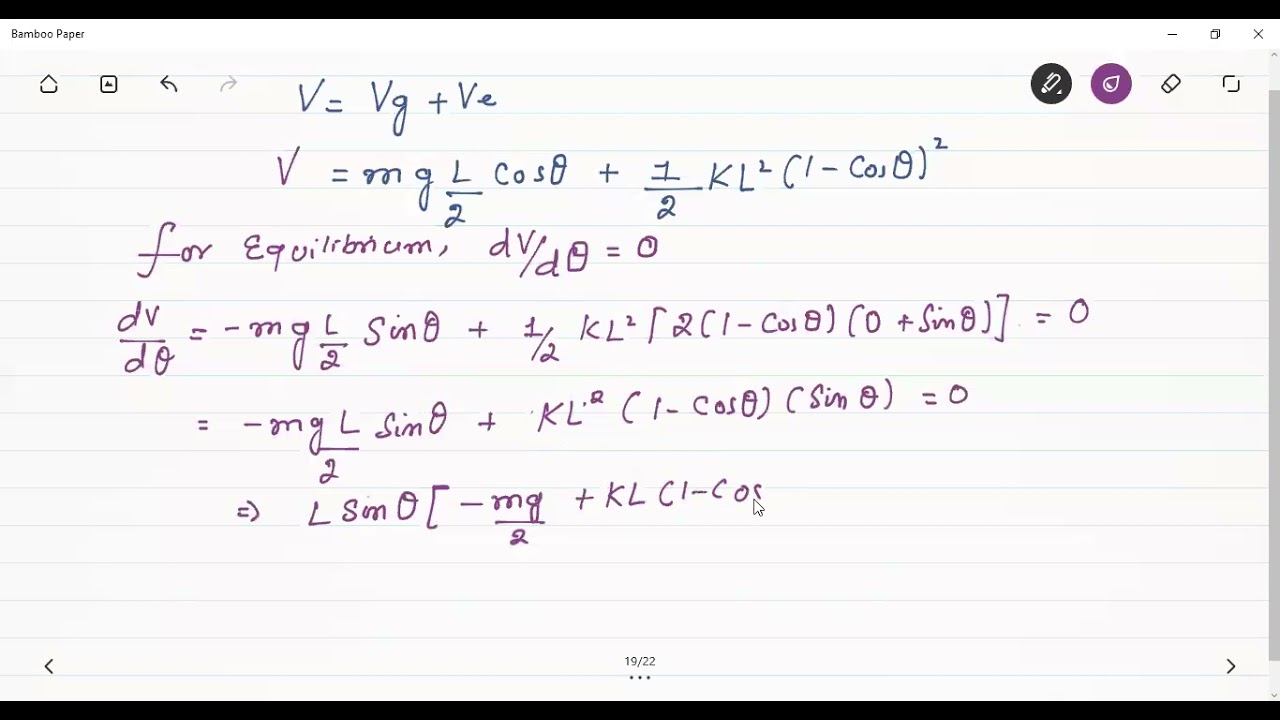 Bamboo Paper
V = Vg + Ve
V = mg L/2 Cosθ + 1/2 KL² (1 - Cosθ)²
for Equilibrium, dV/dθ = 0
dV/dθ = - mg L/2 Sinθ + 1/2 KL² [2(1 - Cosθ)(0 + Sinθ)] = 0
= - mg L/2 Sinθ + KL² (1 - Cosθ)(Sinθ) = 0
⇒ L Sinθ [ - mg/2 + KL (1 - Cos
19/22